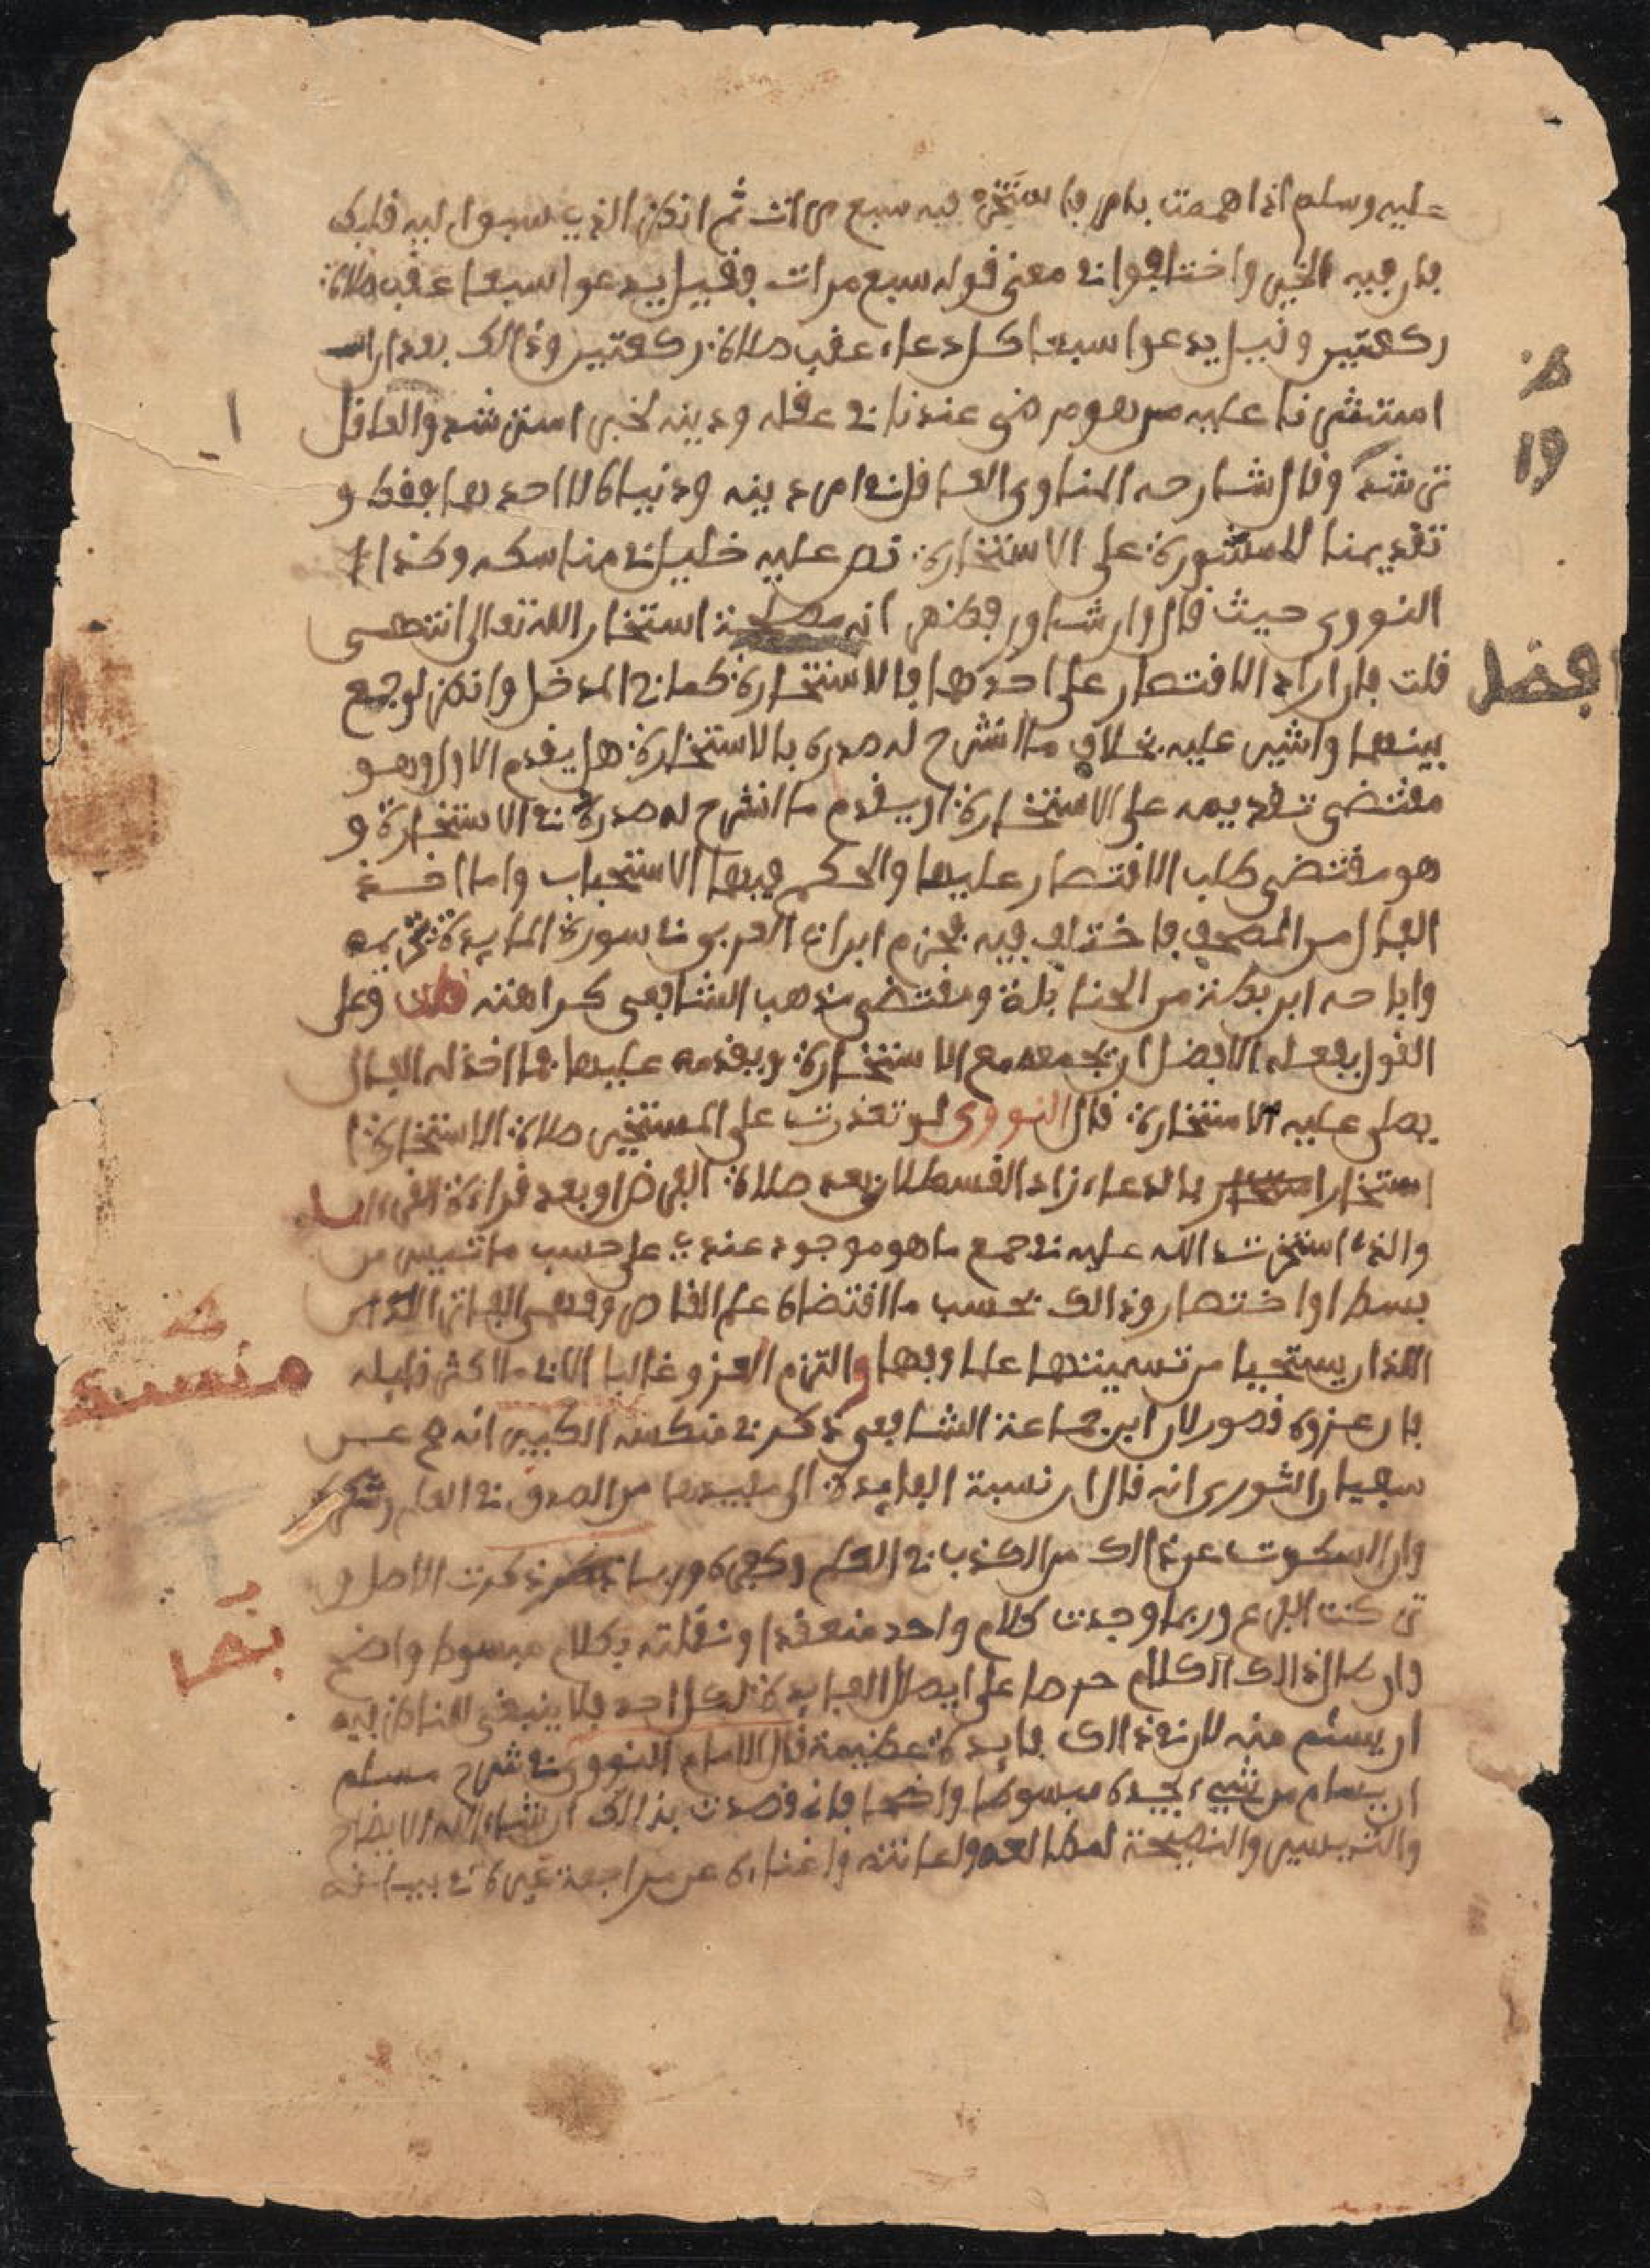 عليه وسلم اذا هممت بامر فاستخر فيه سبع مرات ثم انظر الذي سبق اليه قلبك
فان فيه الخير واختلفوا في معنى قوله سبع مرات فقيل يدعوا سبعا عقب صلاة
ركعتين وقيل يدعوا سبعا كل دعاء عقب صلاة ركعتين وذالك بعد ان
استشرنا عليه من هو مرضي عندنا في عقله ودينه لخبر استرشدوا العاقل
ترشدوا وقال شارحه المناوي العاقل في امر دينه ودنياه لا احدهما فقط و
تقديمنا للاستشورة على الاستخارة نص عليه خليل في مناسكه وكذا
النووي حيث قال وان شاور فظهر انه مصلحة استخار الله تعالى انتهى
قلت فان اراد الاقتصار على احدهما فالاستخارة كما في المدخل وانظر لو جمع
بينهما واشير عليه بخلاف ما انشرح له صدره بالاستخارة هل يقدم الاول وهو
مقتضى تقديمه على الاستخارة او يقدم ما انشرح له صدره في الاستخارة و
هو مقتضى طلب الاقتصار عليها والحكم فيهما الاستحباب واما اخذ
الفال من المصحف فاختلف فيه فجزم ابن العربي في سورة المايدة بتحريمه
واباحه ابن بطة من الحنابلة ومقتضى مذهب الشافعي كراهته قلت وعلى
القول بفعله الافضل ان يجمعه مع الاستخارة ويقدمه عليها فما اخذ له الفال
يصلي عليه الاستخارة قال النووي لو تعذرت على المستخير صلاة الاستخارة
استخار بالدعاء زاد القسطلاني بعد صلاة الفرض او بعد قراءة القرءان
والذي استخرت الله عليه في جمع ما هو موجود عندي على حسب ما تيسر من
بسط او اختصار وذالك بحسب ما اقتضاه علم القاصر وفهمي الفاتر اللذين
اللذان يستحيا من تسميتهما علما وفهما والتزم العزو غالبا الا في ما كثر قايله
فان عزوه قصور لان ابن جماعة الشافعي ذكر في منسكه الكبير انه صح عن
سفيان الثوري انه قال ان نسبة الفايدة الى مفيدها من الصدق في العلم وشكره
وان السكوت عن ذالك من الكذب في العلم وكفره وربما ذكرت الاصل و
تركت الفرع وربما وجدت كلام واحد منعقدا ونقلته بكلام مبسوط واضح
وان طال ذالك الكلام حرصا على ايصال الفايدة لكل احد فلا ينبغي للناظر فيه
ان يسئم منه لان في ذالك فايدة عظيمة قال الامام النووي في شرح مسلم
ان يسئم من شيء يجده مبسوطا واضحا فانه قصدت بذالك ان شاء الله الايضاح
والتيسير والنصيحة لمطالعه ولعانته واغناءه عن مراجعة غيره في بيانه